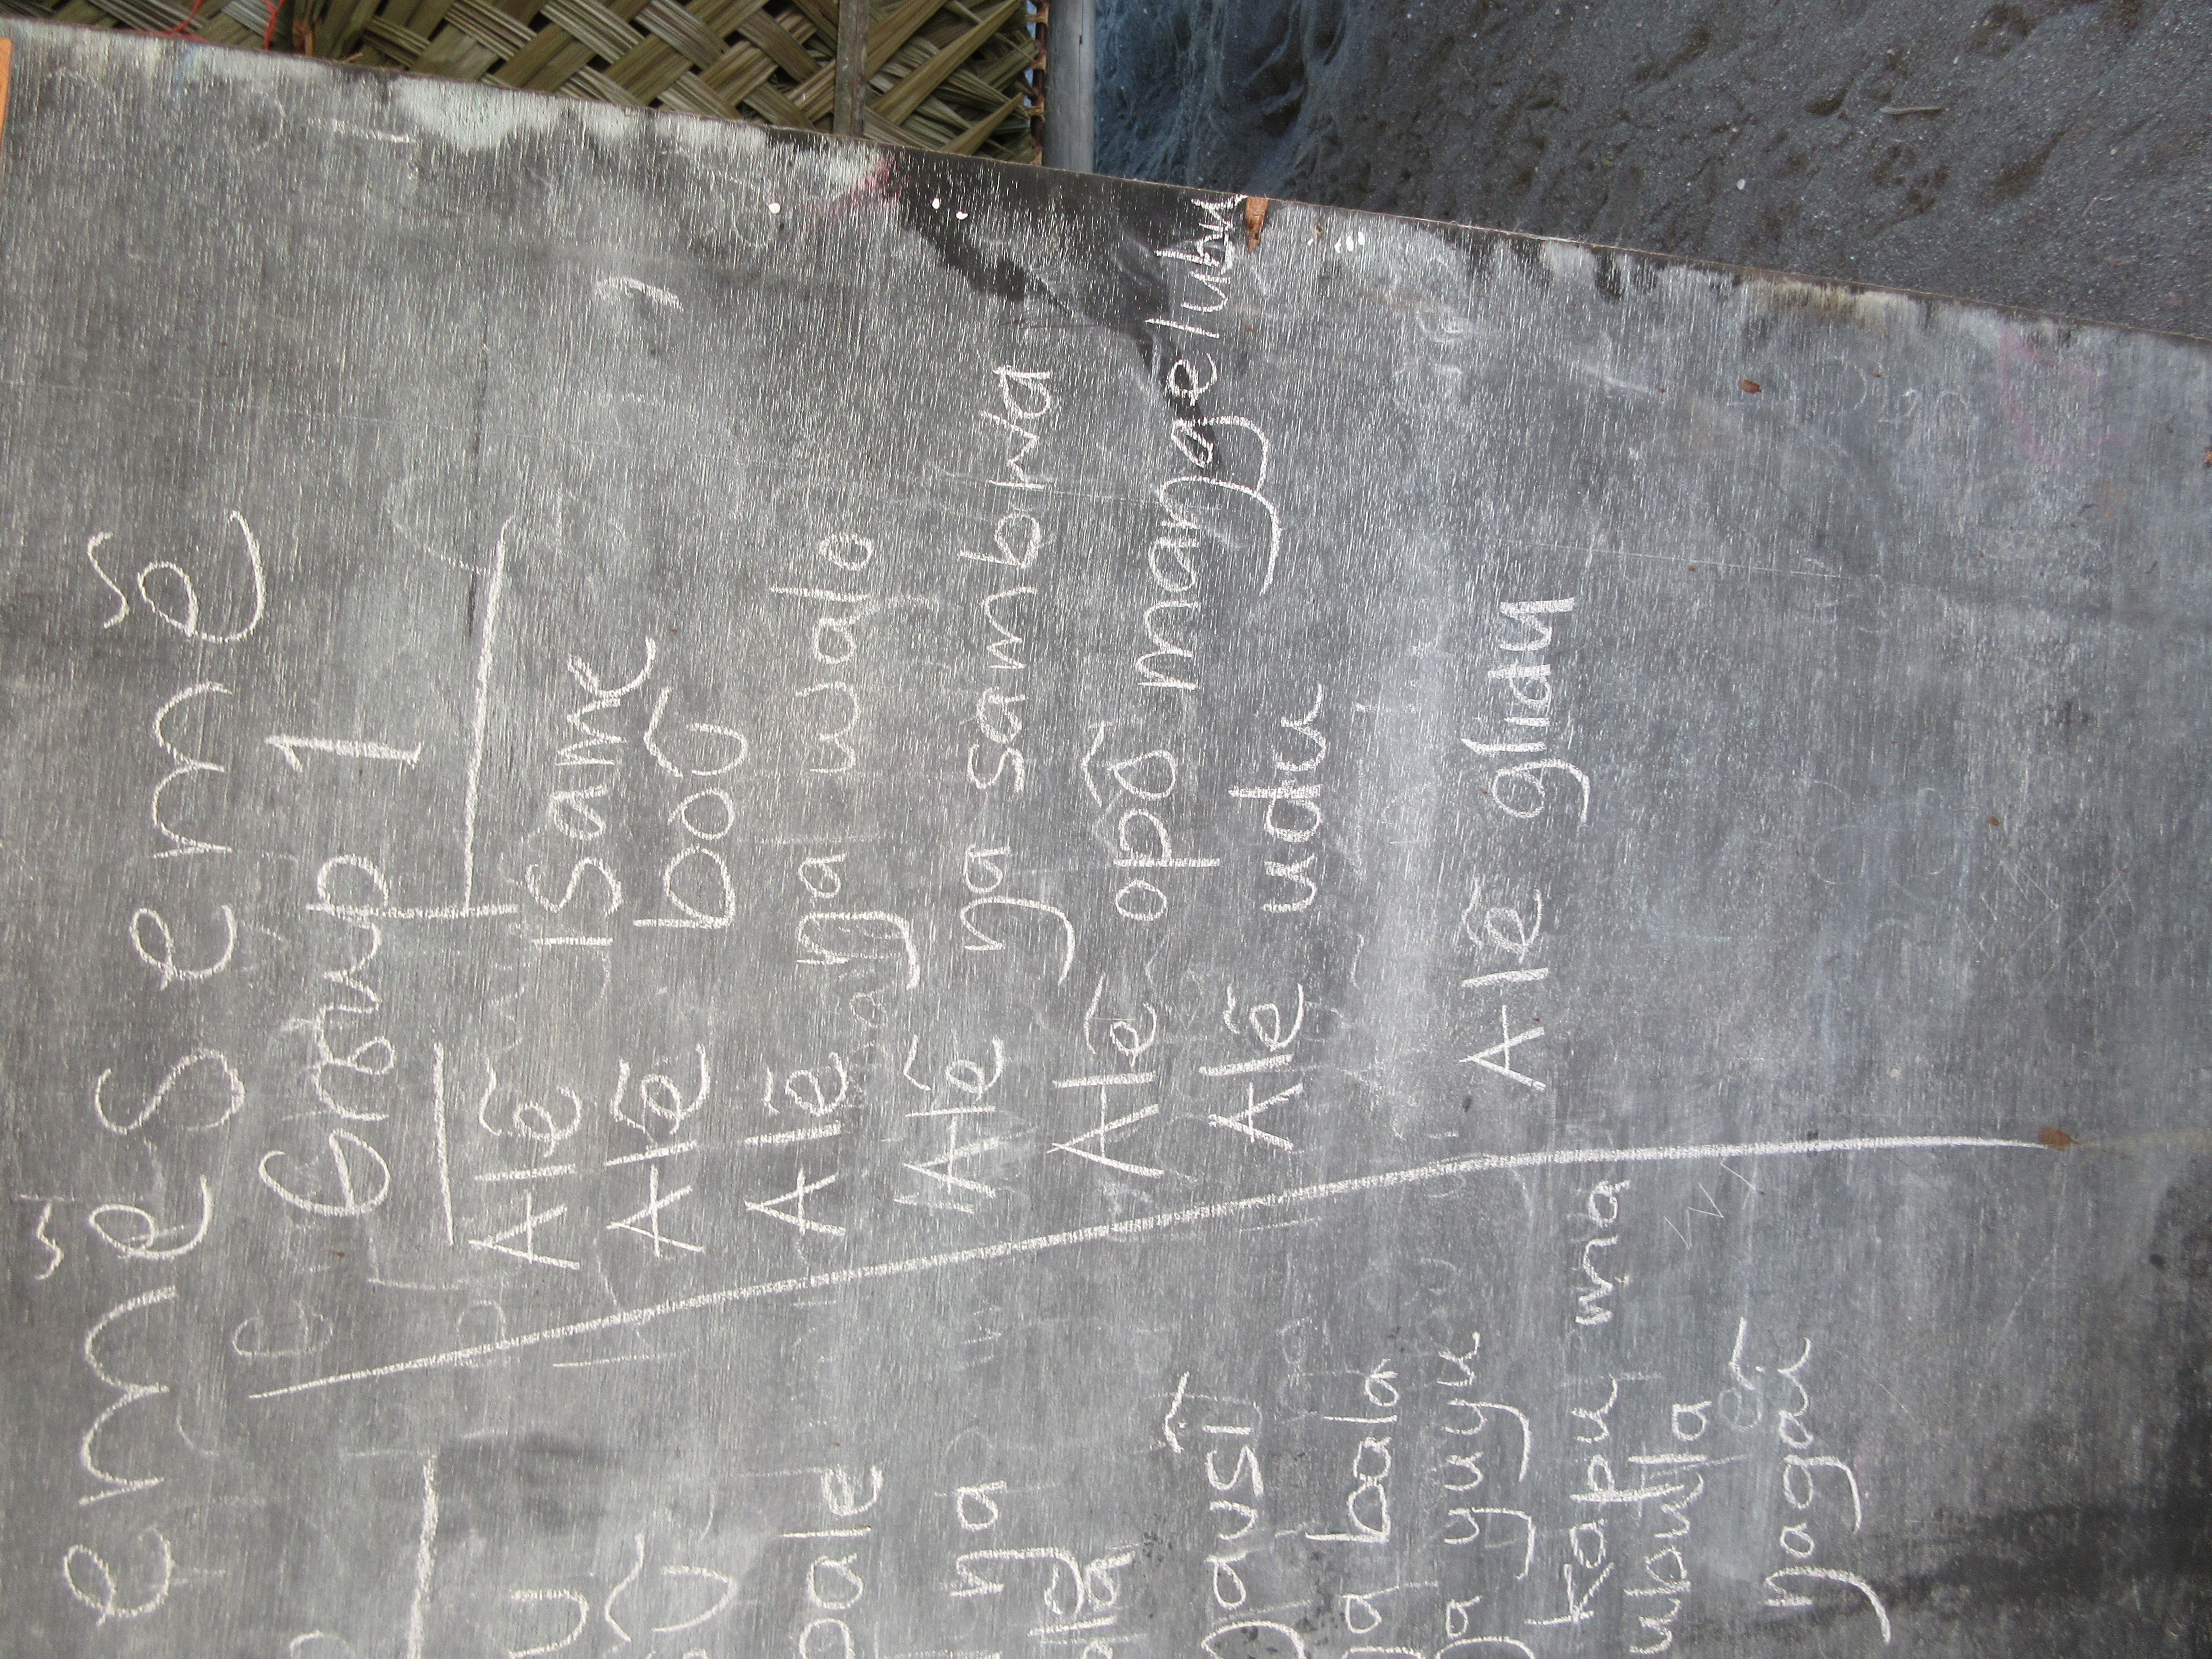 emẽsemẽ
Group 1
Alẽ isame
Alẽ boõ
Alẽ ŋa walo
Alẽ ŋa sambwa
Alẽ opõ maŋgelubu
Alẽ udu
Alẽ glidu
pale
ŋa
ŋausĩ
ŋa bala
ŋa yuyu
kapu mna
ubulla
yogaũ